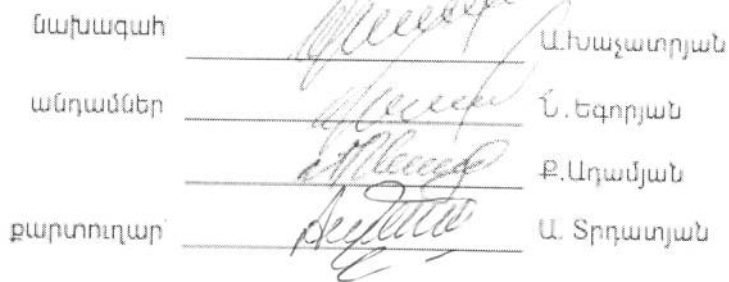 նախագահ Ա.Խաչատրյան
անդամներ Ն.Եգորյան
Ք.Ադամյան
քարտուղար Ա. Տրդատյան